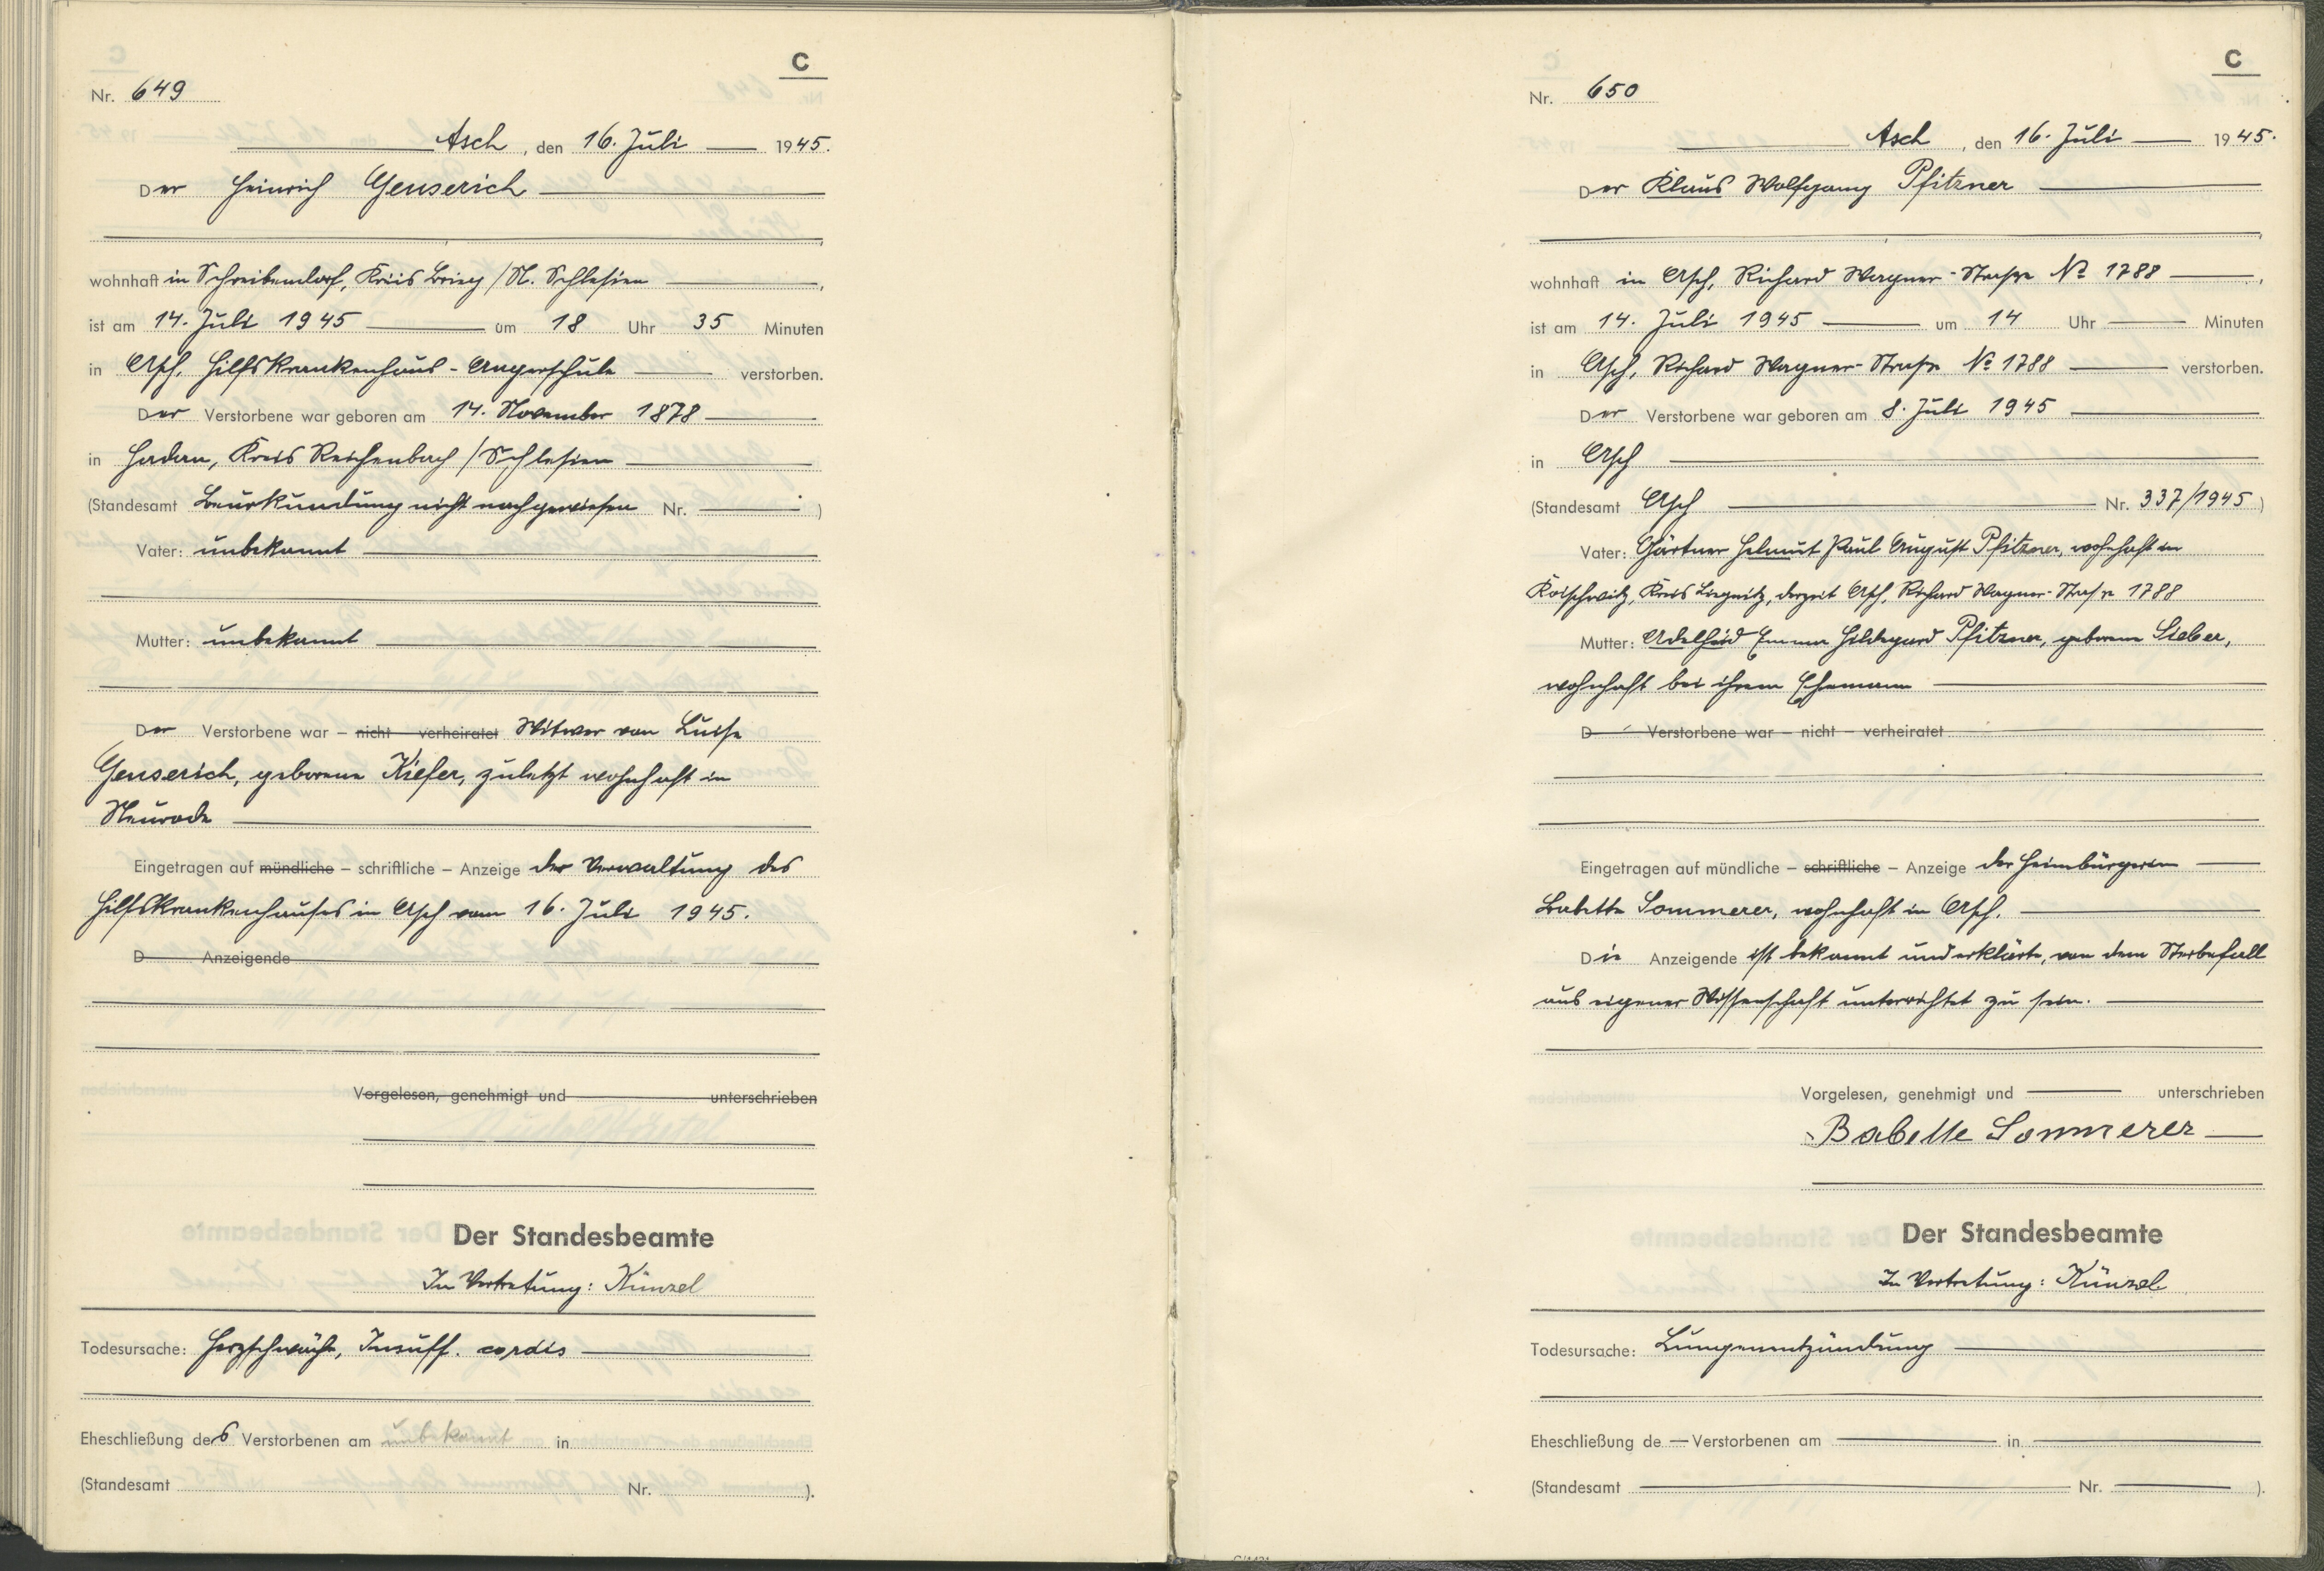 C
Nr. 649
Asch, den 16. Juli 1945.
Der Heinrich Genserich
wohnhaft in Schreibendorf, Kreis Brieg / N. Schlesien,
ist am 14. Juli 1945 um 18 Uhr 35 Minuten
in Asch, Hilfskrankenhaus - Angerschule verstorben.
Der Verstorbene war geboren am 14. November 1878
in Kreis Reichenbach / Schlesien
(Standesamt Beurkundung nicht nachgewiesen Nr. )
Vater: unbekannt
Mutter: unbekannt
Der Verstorbene war – nicht – verheiratet Witwer von Luise
Genserich, geborene Kiefer, zuletzt wohnhaft in
Neurode
Eingetragen auf mündliche – schriftliche – Anzeige der Verwaltung des
Hilfskrankenhauses in Asch vom 16. Juli 1945.
D Anzeigende
Vorgelesen, genehmigt und unterschrieben
Der Standesbeamte
In Vertretung: Künzel
Todesursache: Herzschwäche, Insuff. cordis
Eheschließung des Verstorbenen am unbekannt in
(Standesamt Nr. ).
C
Nr. 650
Asch, den 16. Juli 1945.
Der Klaus Wolfgang Pfitzner
wohnhaft in Asch, Richard Wagner-Straße No 1788,
ist am 14. Juli 1945 um 14 Uhr Minuten
in Asch, Richard Wagner-Straße No 1788 verstorben.
Der Verstorbene war geboren am 8. Juli 1945
in Asch
(Standesamt Asch Nr. 337/1945)
Vater: Gärtner Helmut Paul August Pfitzner, wohnhaft in
Koischwitz, Kreis Liegnitz, derzeit Asch, Richard Wagner-Straße 1788
Mutter: Adelheid Emma Hildegard Pfitzner, geborene Sieber,
wohnhaft bei ihrem Ehemann
D Verstorbene war – nicht – verheiratet
Eingetragen auf mündliche – schriftliche – Anzeige der Heimbürgerin
Babette Sommerer, wohnhaft in Asch.
Die Anzeigende ist bekannt und erklärte, von dem Sterbefall
aus eigener Wissenschaft unterrichtet zu sein.
Vorgelesen, genehmigt und unterschrieben
Babette Sommerer
Der Standesbeamte
In Vertretung: Künzel
Todesursache: Lungenentzündung
Eheschließung de Verstorbenen am in
(Standesamt Nr. ).